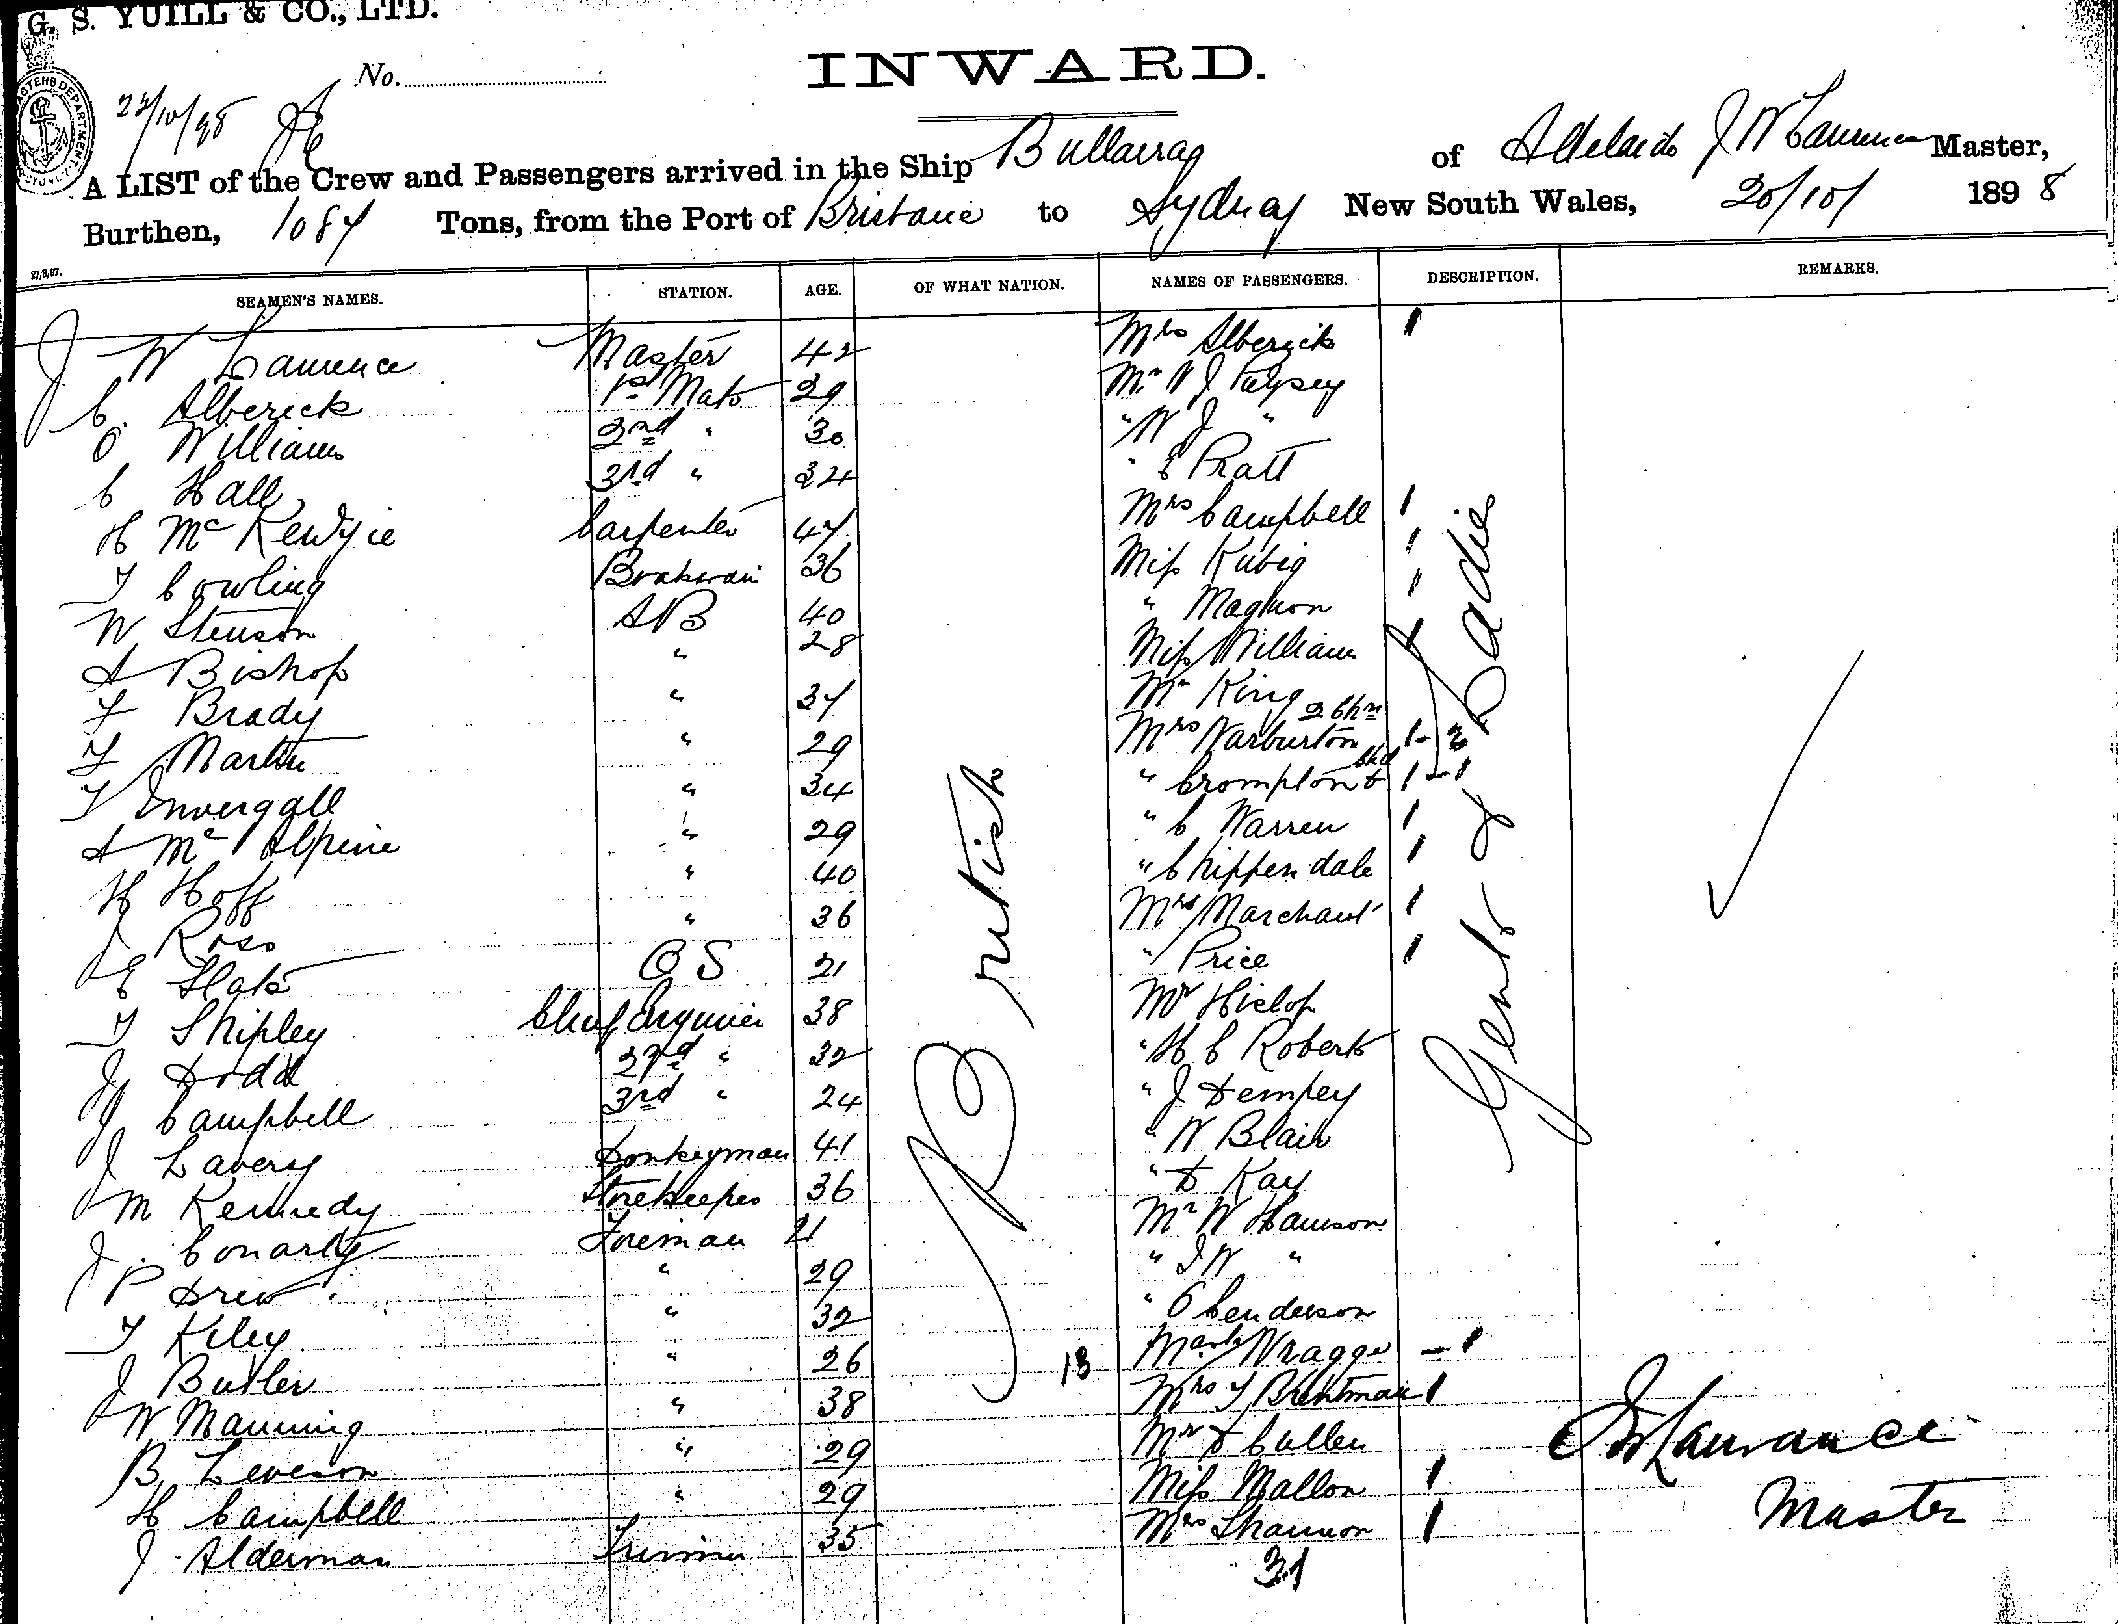 G. S. YUILL & CO., LTD.
No.
INWARD.
A LIST of the Crew and Passengers arrived in the Ship Bullarra of Adelaide J W Laurence Master,
Burthen, 1084 Tons, from the Port of Brisbane to Sydney New South Wales, 20/10/ 1898
SEAMEN'S NAMES. STATION. AGE. OF WHAT NATION. NAMES OF PASSENGERS. DESCRIPTION. REMARKS.
J W Laurence Master 42 Mrs Alberick 1
C. Alberick 1st Mate 29 Mr
O Williams 2nd " 30 " W J "
C Hall 3rd " 24 " E Pratt
H Mc Kenzie Carpenter 47 Mrs Campbell 1
T Cowling 36 Miss Kubig 1
W Stenson AB 40 " Magnon 1
A Bishop " 28 Miss Williams 1
F Brady " 37 Mr King
F Martin " 29 Mrs Warburton 2 Chn 1 - 2
T Invergall " 34 " Crompton & Chd 1 - 1
A Mc Alpine " 29 " C Warren 1
H Hoff " 40 " Chippendale 1
J Ross " 36 Mrs Marchant 1
E Slate OS 21 " Price 1
T Shipley Chief Engineer 38 Mr Hislop
J Dodd 2nd " 32 " H C Roberts
J Campbell 3rd " 24 " J Dempsey
J Lavery Donkeyman 41 " W Blair
M Kennedy Storekeeper 36 " D Kay
J. Conarty Foreman 21 Mr W Hamson
P Drew " 29 " J W "
T Kiley " 32 " O Cenderson
J Butler " 26 13 Wragge - 1
W Manning " 38 Mrs T Brentman 1
B Leveson " 29 Mr D Cullen
H Campbell " 29 Miss Mallon 1
J Alderman Trimmer 35 Mrs Shannon 1
31
British
Gents & Ladies
J W Laurance
Master